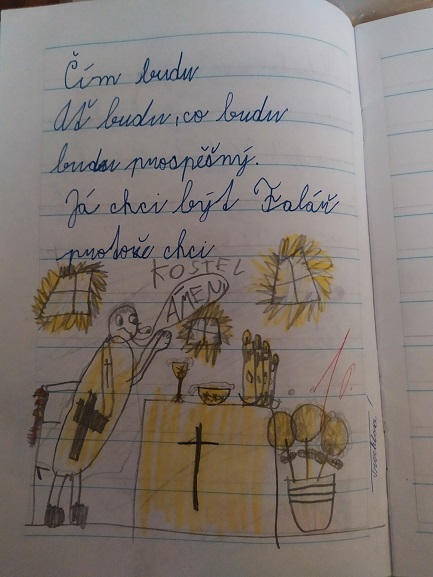 Čím budu
Až budu, co budu
budu prospěšný.
Já chci být Faláň
protože chci
KOSTEL
AMEN
1